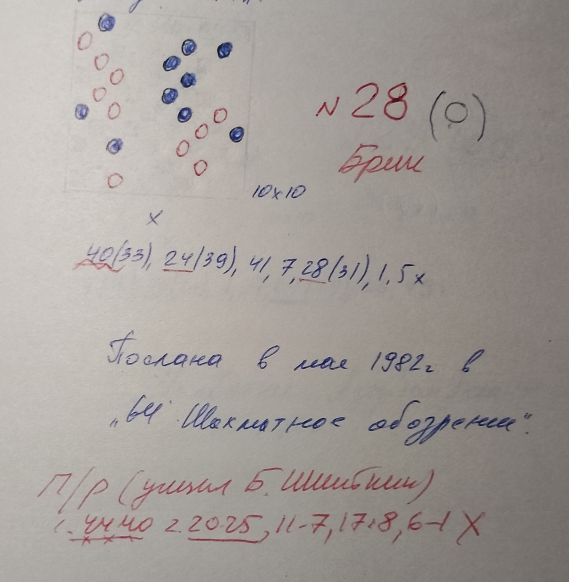 N 28 (О)
Брин
10х10
х
40(33), 24(39), 41, 7, 28(31), 1, 5х
Послана в мае 1982г в
„64 Шахматное обозрение“.
П/р (учинил Б. Шкиткин)
1. 44-40 2. 20-25, 11-7, 17-8, 6-1 Х